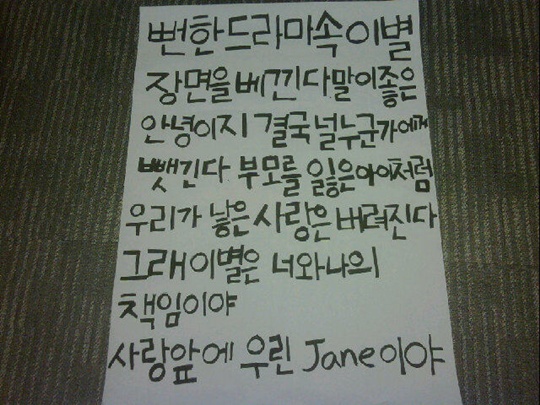 뻔한드라마속이별
장면을베낀다말이좋은
안녕이지 결국널누군가에게
뺏긴다 부모를 잃은아이처럼
우리가 낳은 사랑은 버려진다
그래이별은 너와나의
책임이야
사랑앞에 우린 Jane이야